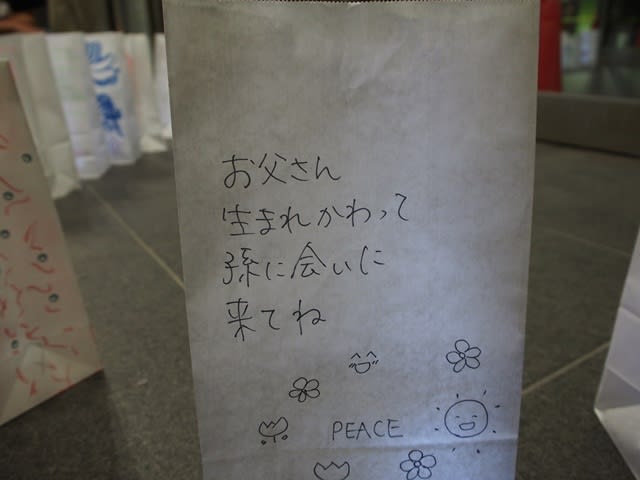 お父さん
生まれかわって
孫に会いに
来てね
PEACE